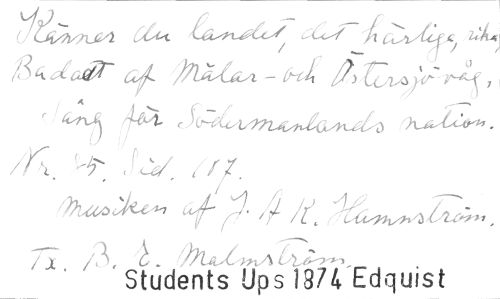 Känner du landet, det härliga, rika,
Badadt af Mälar- och Östersjövåg,
Sång för Södermanlands nation.
Nr. 45. Sid. 107.
Musiken af J. A K. Hamnström.
Tx. B. E. Malmström.
Students Ups 1874 Edquist